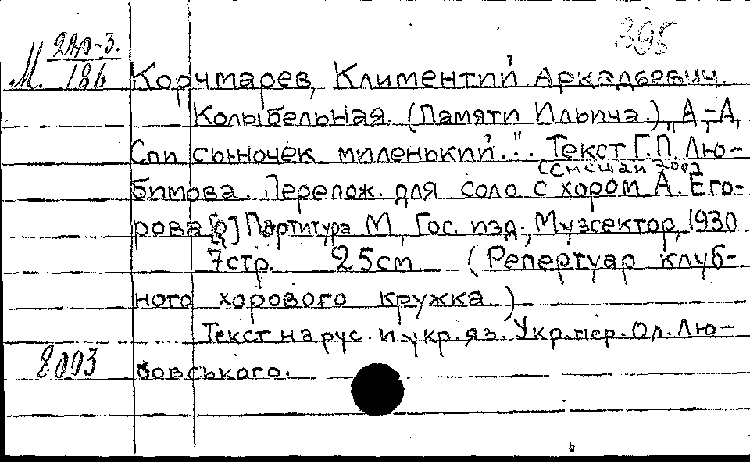 395
М. 280-3.
186
Корчмарев, Климентий Аркадьевич.
"Колыбельная. (Памяти Ильича.) "А-А,
Спи сыночек миленький.". Текст Г.П. Лю-
(смешан хор)
бимова. Перелож. для соло с хором А. Его-
рова Партитура М., Гос. изд., Музсектор, 1930
7стр. 25см (Репертуар клуб-
ного хорового кружка.)
Текст на рус. и укр. яз. Укр. пер. Ол. Лю-
8093
бовського.